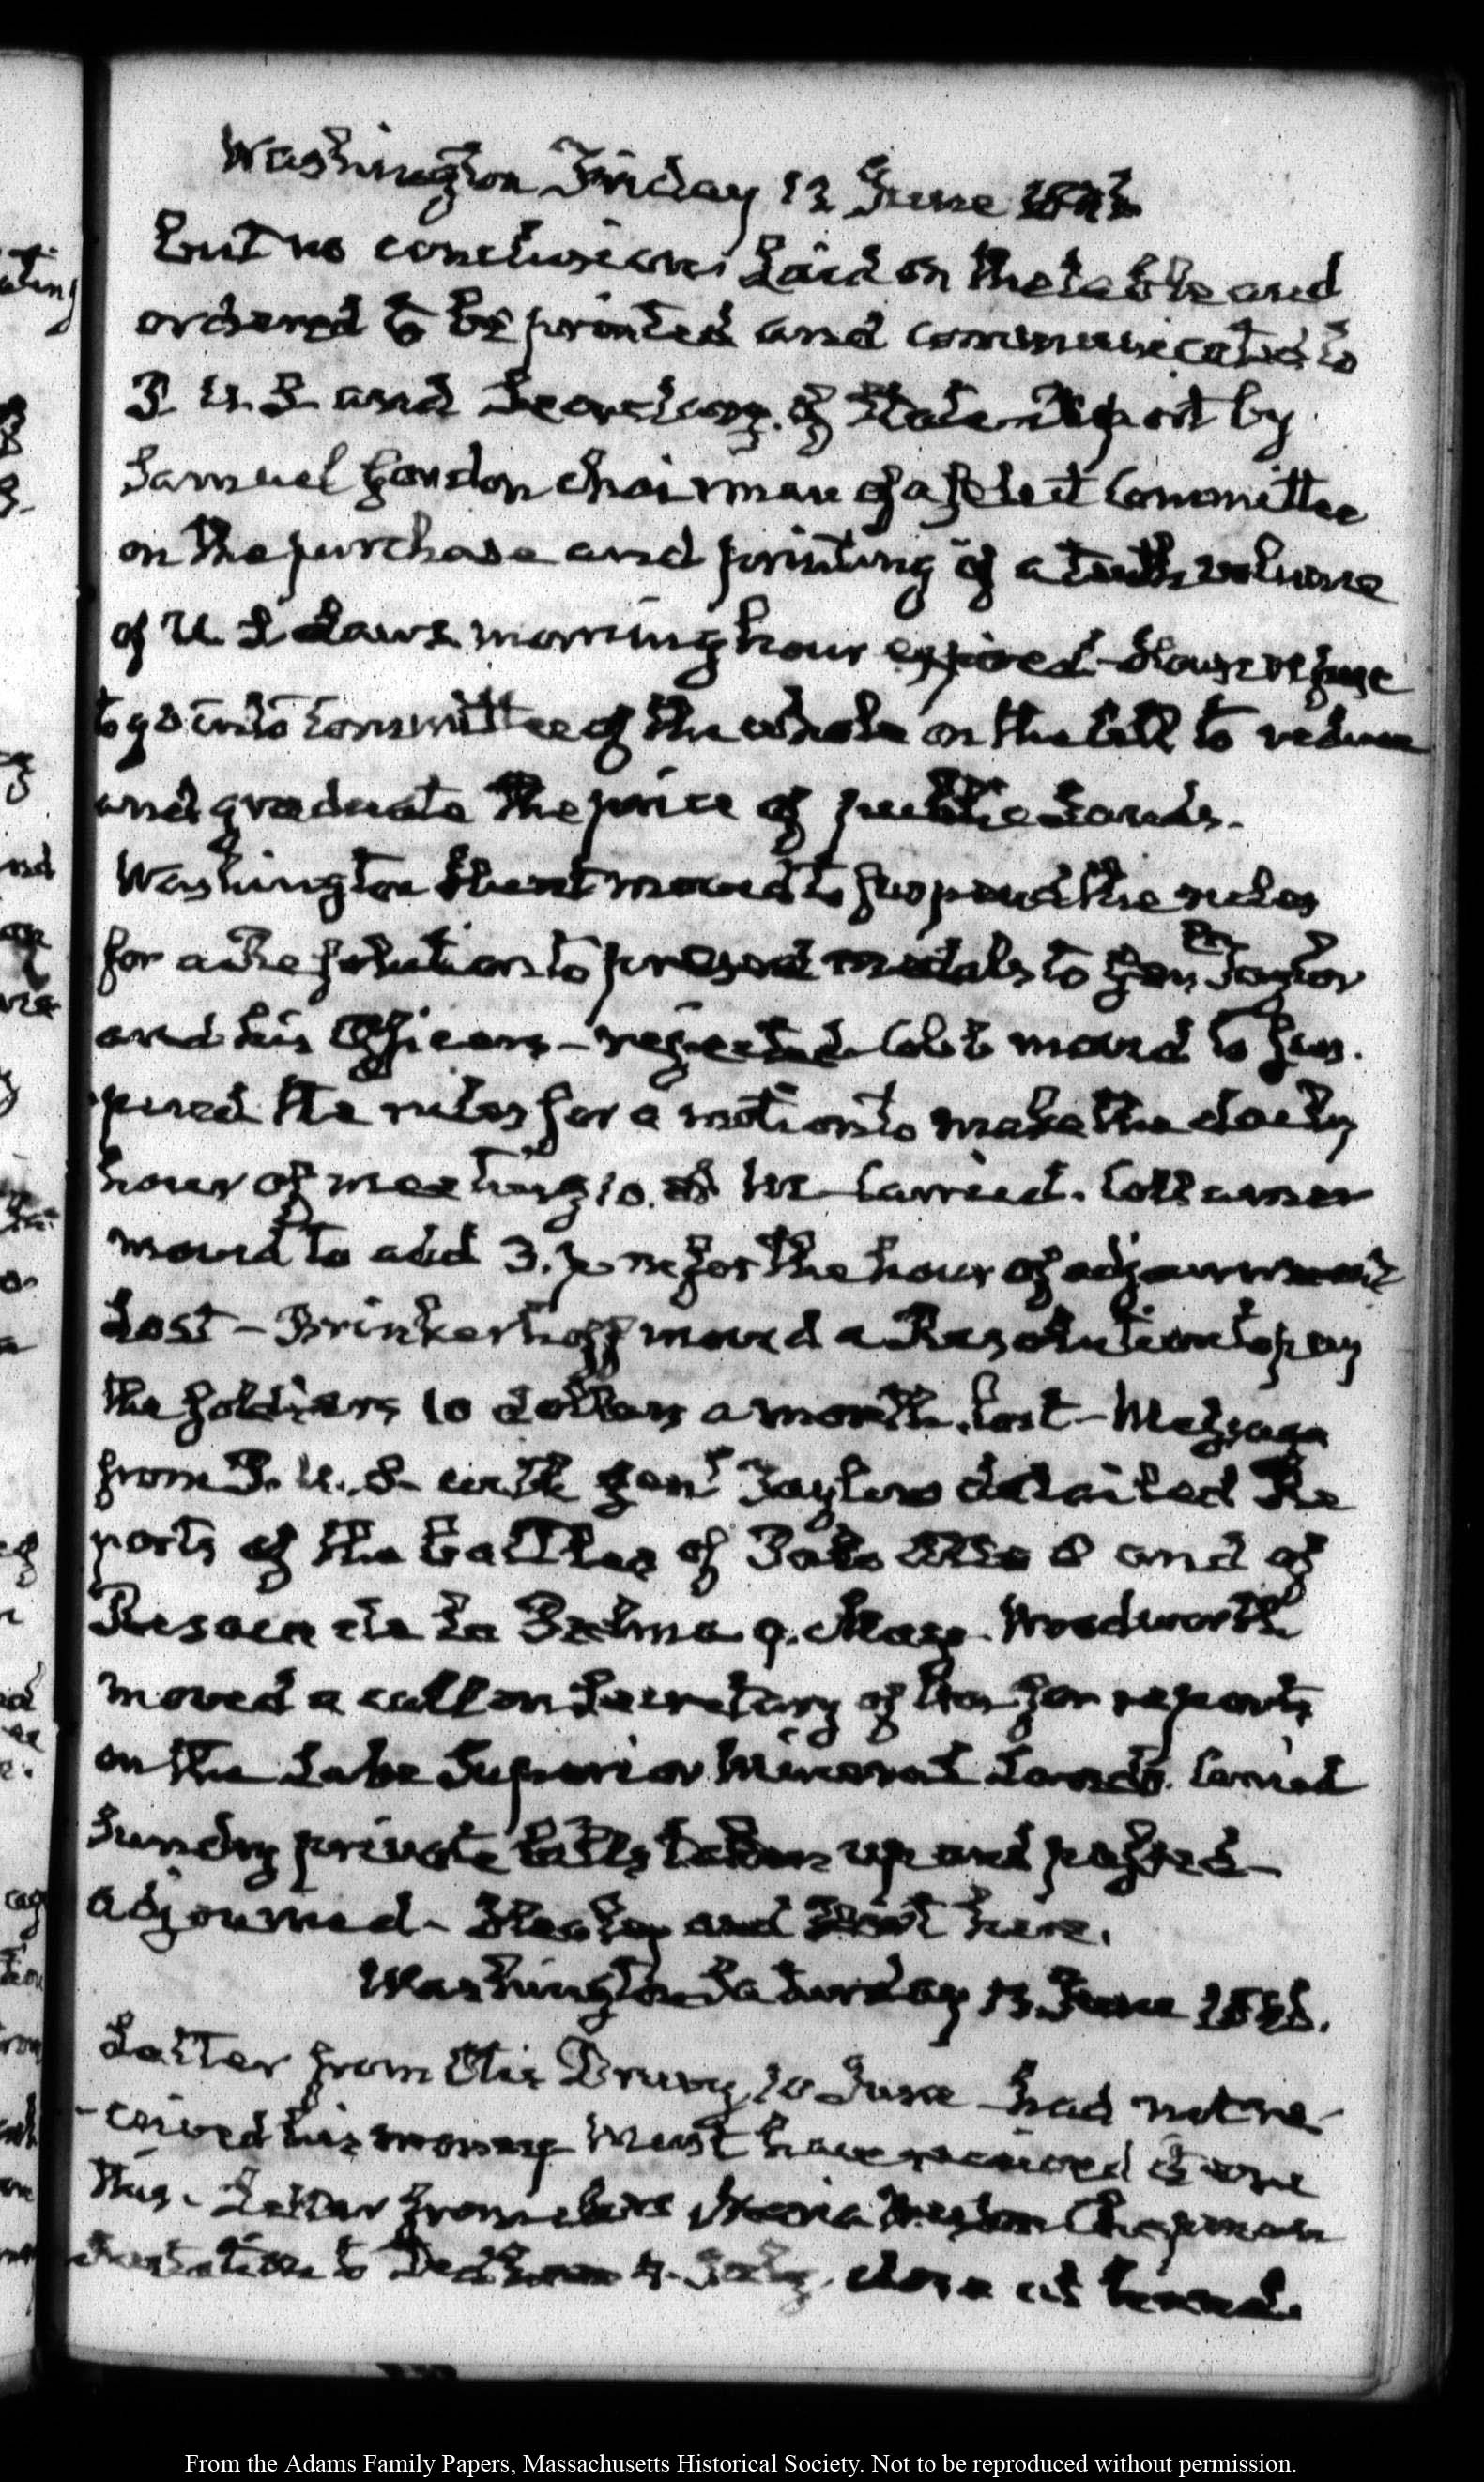 Washington Friday 12 June 1846
but no conclusion. Laid on the table and
ordered to be printed and communicated to
P. U. S and Secretary of State. Report by
Samuel Gordon chairman of a select Committee
on the purchase and printing of a tenth volume
of U. S Laws morning hour expired. House refuse
to go into Committee of the whole on the bill to reduce
and graduate the price of public Lands.
Washington Hunt moved to suspend the rules
for a Resolution to present medals to Genl. Taylor
and his Officers – rejected. Cobb moved to sus.
pend the rules for a motion to make the daily
hour of meeting 10. Carried. Collamer
moved to add 3. for the hour of adjournment
Lost – Brinkerhoff moved a Resolution to pay
the soldiers 10 dollars a month. lost – Message
from P. U. S with Genl Taylors detailed Re
ports of the battles of Palo Alto 8 and of
Resaca de la Palma 9. May. Woodworth
moved a call on Secretary of War for reports
on the Lake Superior Mineral Lands. Carried
Sundry private bills taken up and passed –
adjourned – and here.
Washington Saturday 13 June 1846.
Letter from Otis Drury, 10 June had not re-
-ceived his money must have received it ere
this. Letter from Maria Weston Chapman
Invitation to Dedham 4. July.
From the Adams Family Papers, Massachusetts Historical Society. Not to be reproduced without permission.